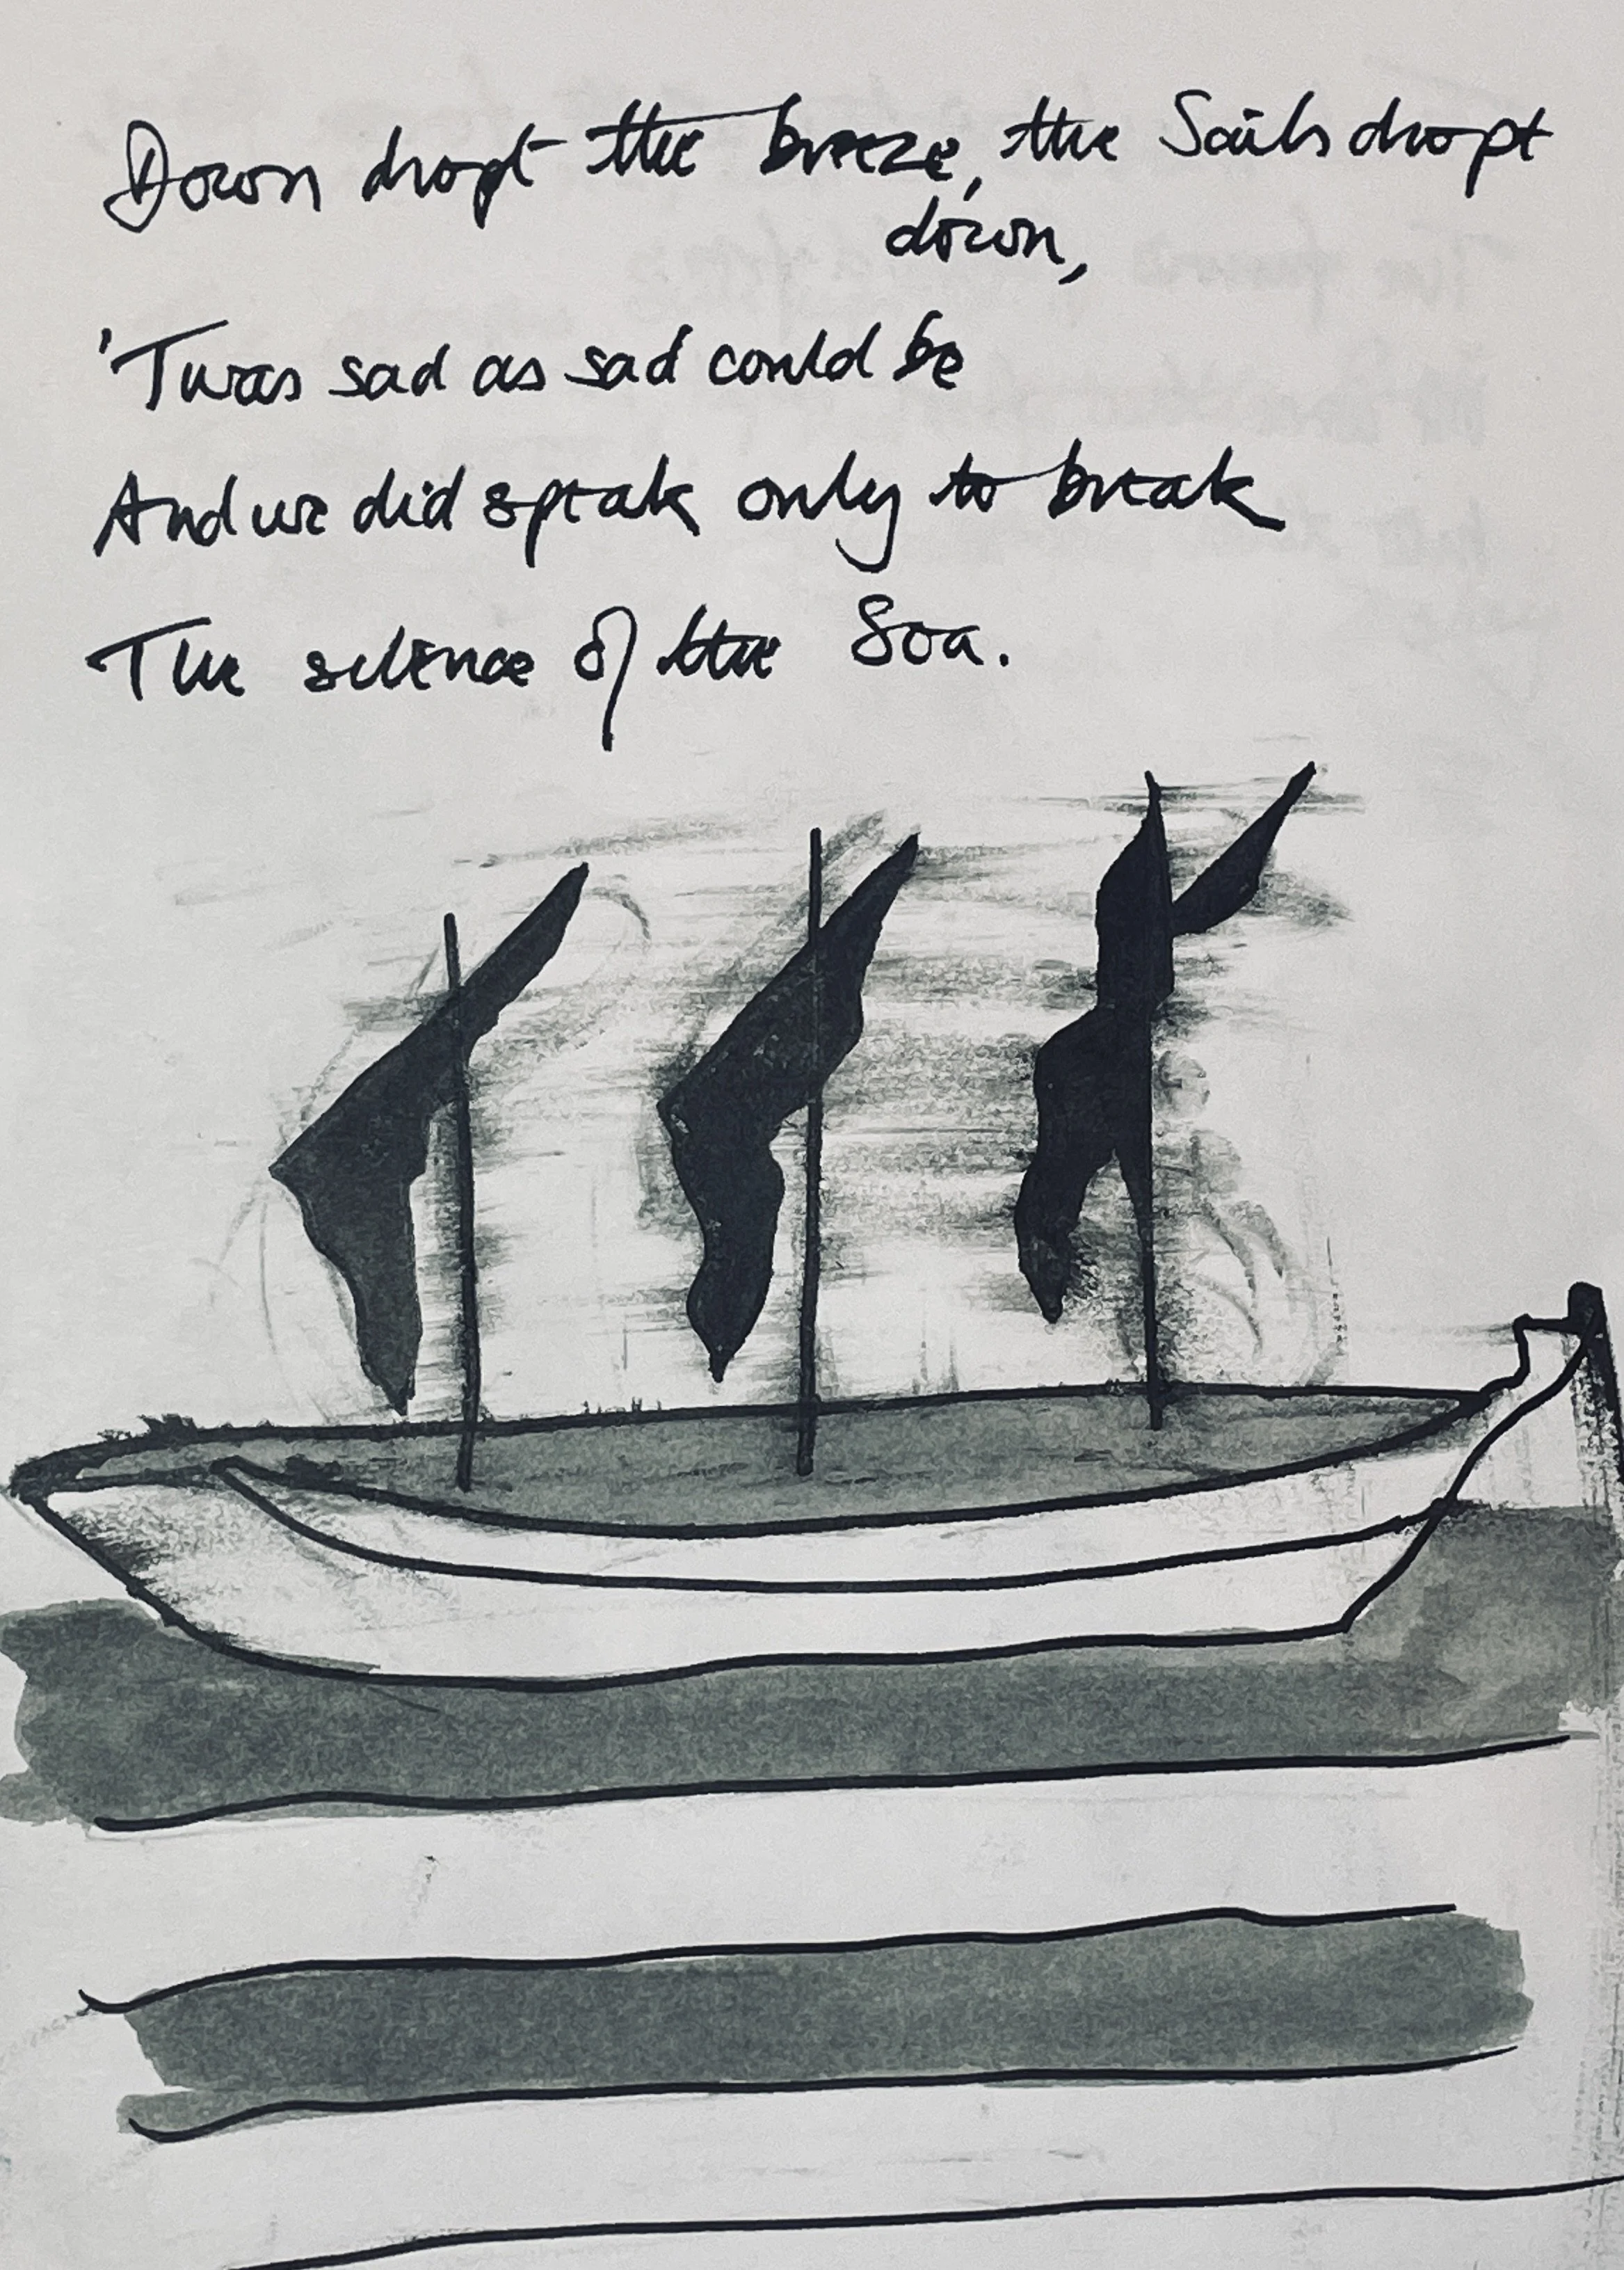 Down dropt the breeze, the Sails dropt
down,
'Twas sad as sad could be
And we did speak only to break
The silence of the Sea.